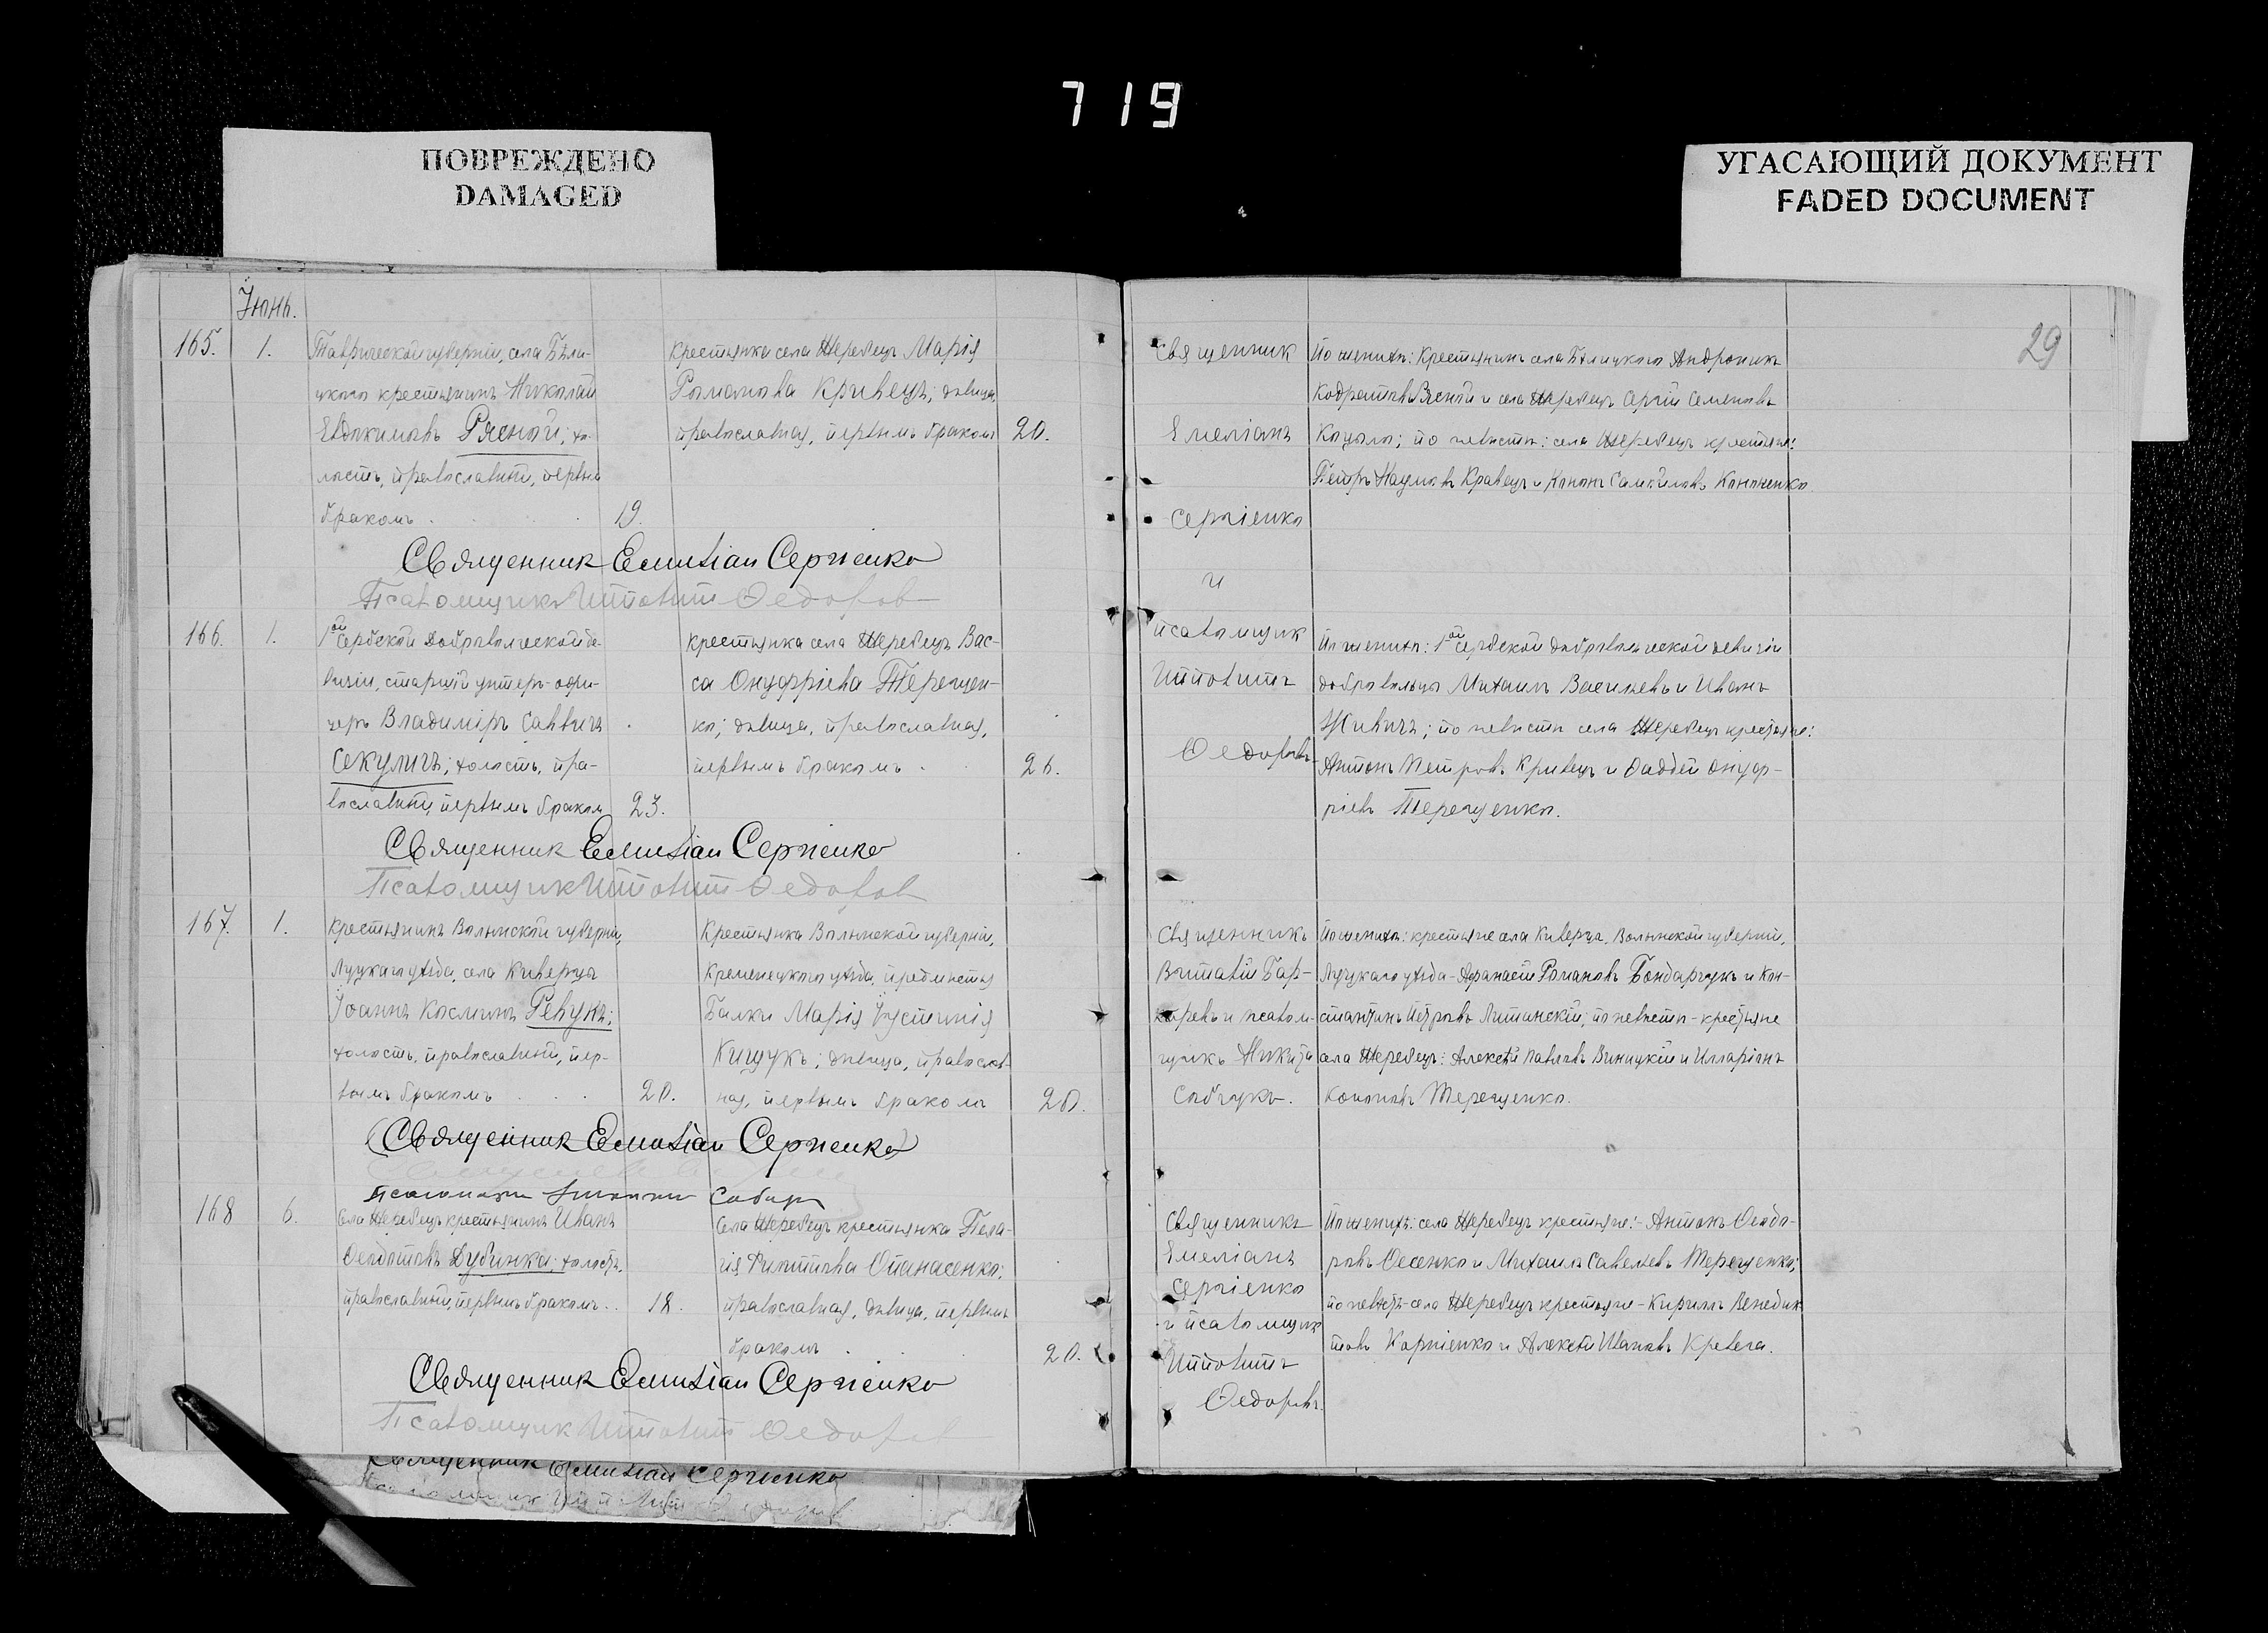 719
ПОВРЕЖДЕНО
DAMAGED
УГАСАЮЩИЙ ДОКУМЕНТ
FADED DOCUMENT
29
Іюнь.
165. 1.
Таврической губерніи, села Бѣли-
цкаго крестьянинъ Николай
Евдокимовъ Рясной; хо-
лостъ, православный, первым
бракомъ . . . 19.
Крестьянка села Жеребецъ Марія
Романова Кривецъ; дѣвица,
православная, первымъ бракомъ 20.
Священникъ
Емеліанъ
Сергіенко
и
псаломщик
Ипполитъ
Федоровъ
По женихѣ: крестьянинъ села Бѣлицкаго Андроникъ
Кодратовъ Рясной и села Жеребецъ Сергій Семеновъ
Коцюпа; по невѣстѣ: села Жеребецъ крестьяне:
Петръ Наумовъ Кравецъ и Кононъ Самойловъ Кононенко
Священник Емилiан Сергиенко
Псаломщикъ Ипполит Федоров
166. 1.
1ой Сербской Добровольческой ди-
визіи, старшій унтеръ-офи-
церъ Владиміръ Саввичъ
Секуличъ; холостъ, пра-
вославный, первымъ браком 23.
крестьянка села Жеребецъ Вас-
са Онуфріева Терещен-
ко; дѣвица, православная,
первымъ бракомъ . 26.
По женихѣ: 1ой Сербской добровольческой дивизіи
добровольцы Михаилъ Васильевъ и Иванъ
Живичъ; по невѣстѣ села Жеребецъ крестьяне:
Антонъ Петровъ Кривецъ и Фаддей Онуф-
ріевъ Терещенко.
Священник Емилiан Сергиенко
Псаломщик Ипполит Федоров
167. 1.
Крестьянинъ Волынской губерніи,
Луцкаго уѣзда, села Киверцы
Іоаннъ Косминъ Ревунъ;
холостъ, православный, пер-
вымъ бракомъ . . . 20.
Крестьянка Волынской губерніи,
Кременецкаго уѣзда, предмѣстья
Балки Марія Іустинія
Кищукъ; дѣвица, православ-
ная, первымъ бракомъ 20.
Священникъ
Виталій Бар-
и псалом-
щикъ Никита
Собчукъ.
По женихѣ: крестьяне села Киверцы, Волынской губерніи,
Луцкаго уѣзда - Афанасій Романовъ Бондарчукъ и Кон-
стантинъ Петровъ Литинскій; по невѣстѣ - крестьяне
села Жеребецъ: Алексѣй Павловъ Виницкій и Илларіонъ
Кононовъ Терещенко.
Священник Емилiан Сергиенко
168 6.
Села Жеребецъ крестьянинъ Иванъ
Феодотовъ Дубинка; холостъ,
православный, первымъ бракомъ.. 18.
Села Жеребецъ крестьянка Пела-
гія Филиппова Опанасенко;
православная, дѣвица, первымъ
бракомъ . . 20.
Священникъ
Емеліанъ
Сергіенко
и псаломщик
Ипполитъ
Федоровъ.
По женихѣ: села Жеребецъ крестьяне: - Антонъ Феодо-
ровъ Фесенко и Михаилъ Савельевъ Терещенко;
по невѣстѣ - села Жеребецъ крестьяне - Кириллъ Венедик
товъ Корніенко и Алексѣй Ивановъ Кревега.
Священник Емилiан Сергиенко
Псаломщик Ипполит Федоров
Священник Емилiан Сергиенко